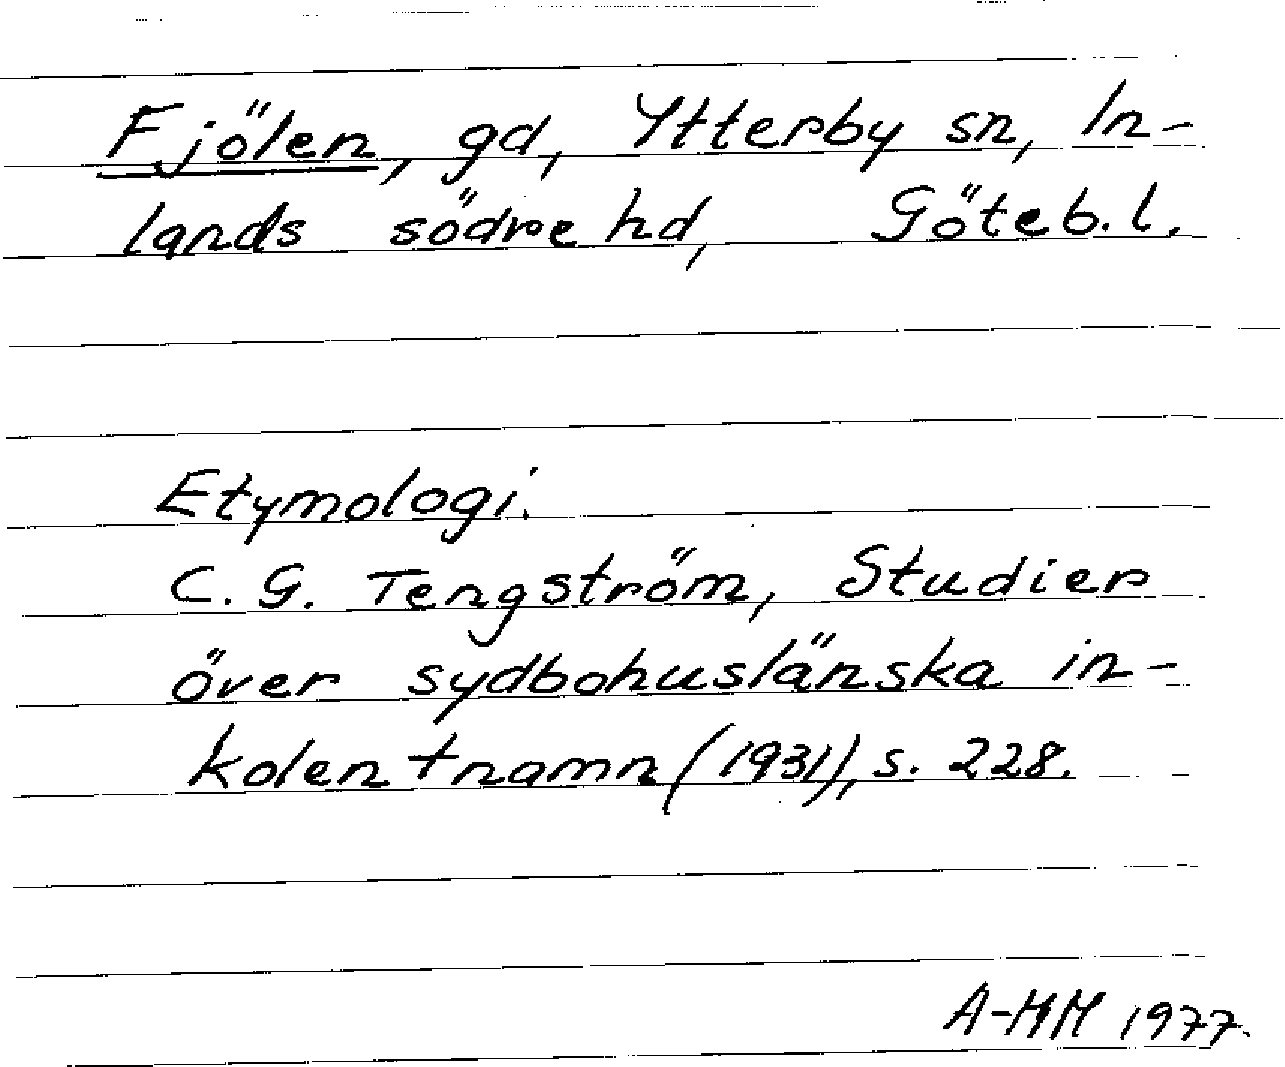 Fjölen, gd, Ytterby sn, In-
lands södre hd, Göteb.l.
Etymologi.
C. G. Tengström, Studier
över sydbohuslänska in-
kolentnamn (1931), s. 228.
A-MM 1977.